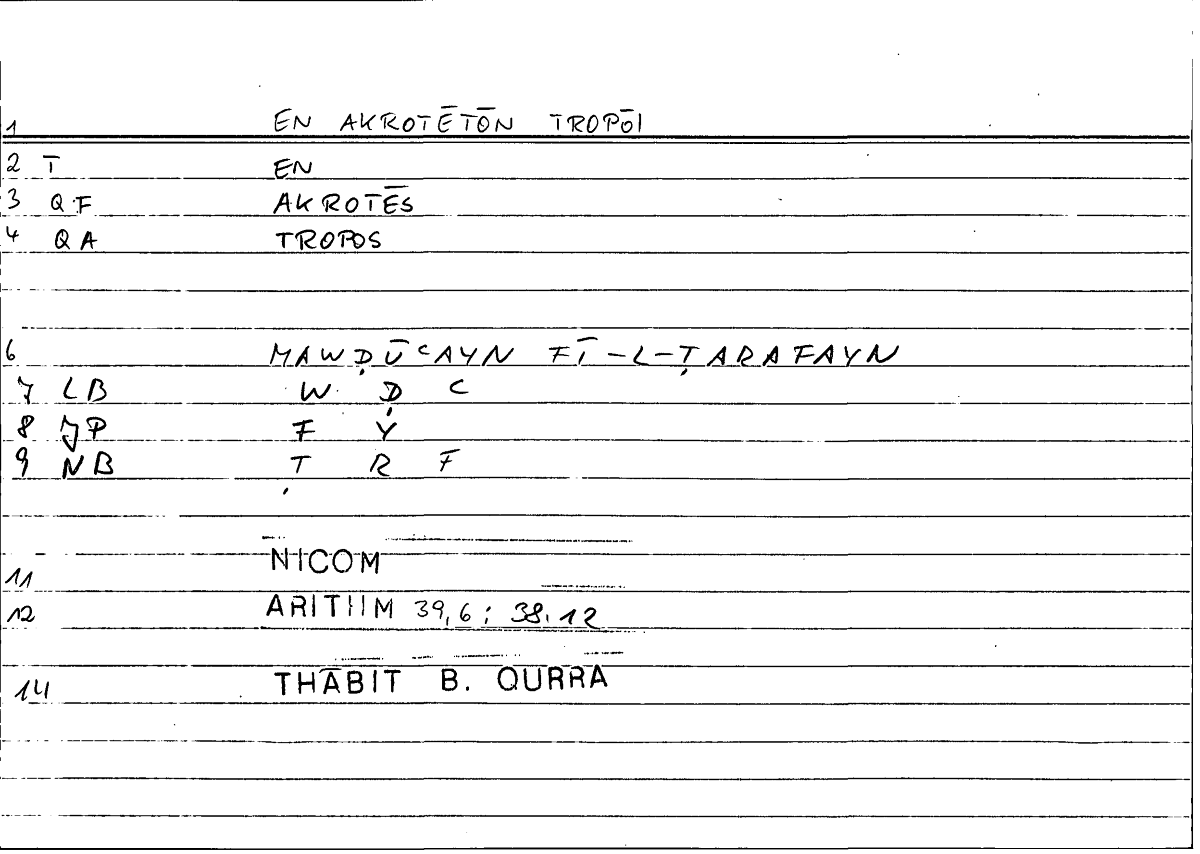 1 EN AKROTĒTŌN TROPŌI
2 T EN
3 QF AKROTĒS
4 QA TROPOS
6 MAWḌŪCAYN FĪ-L-ṬARAFAYN
7 LB W Ḍ C
8 JP F Y
9 NB Ṭ R F
11 NICOM
12 ARITHM 39,6; 38.12
14 THĀBIT B. QURRA